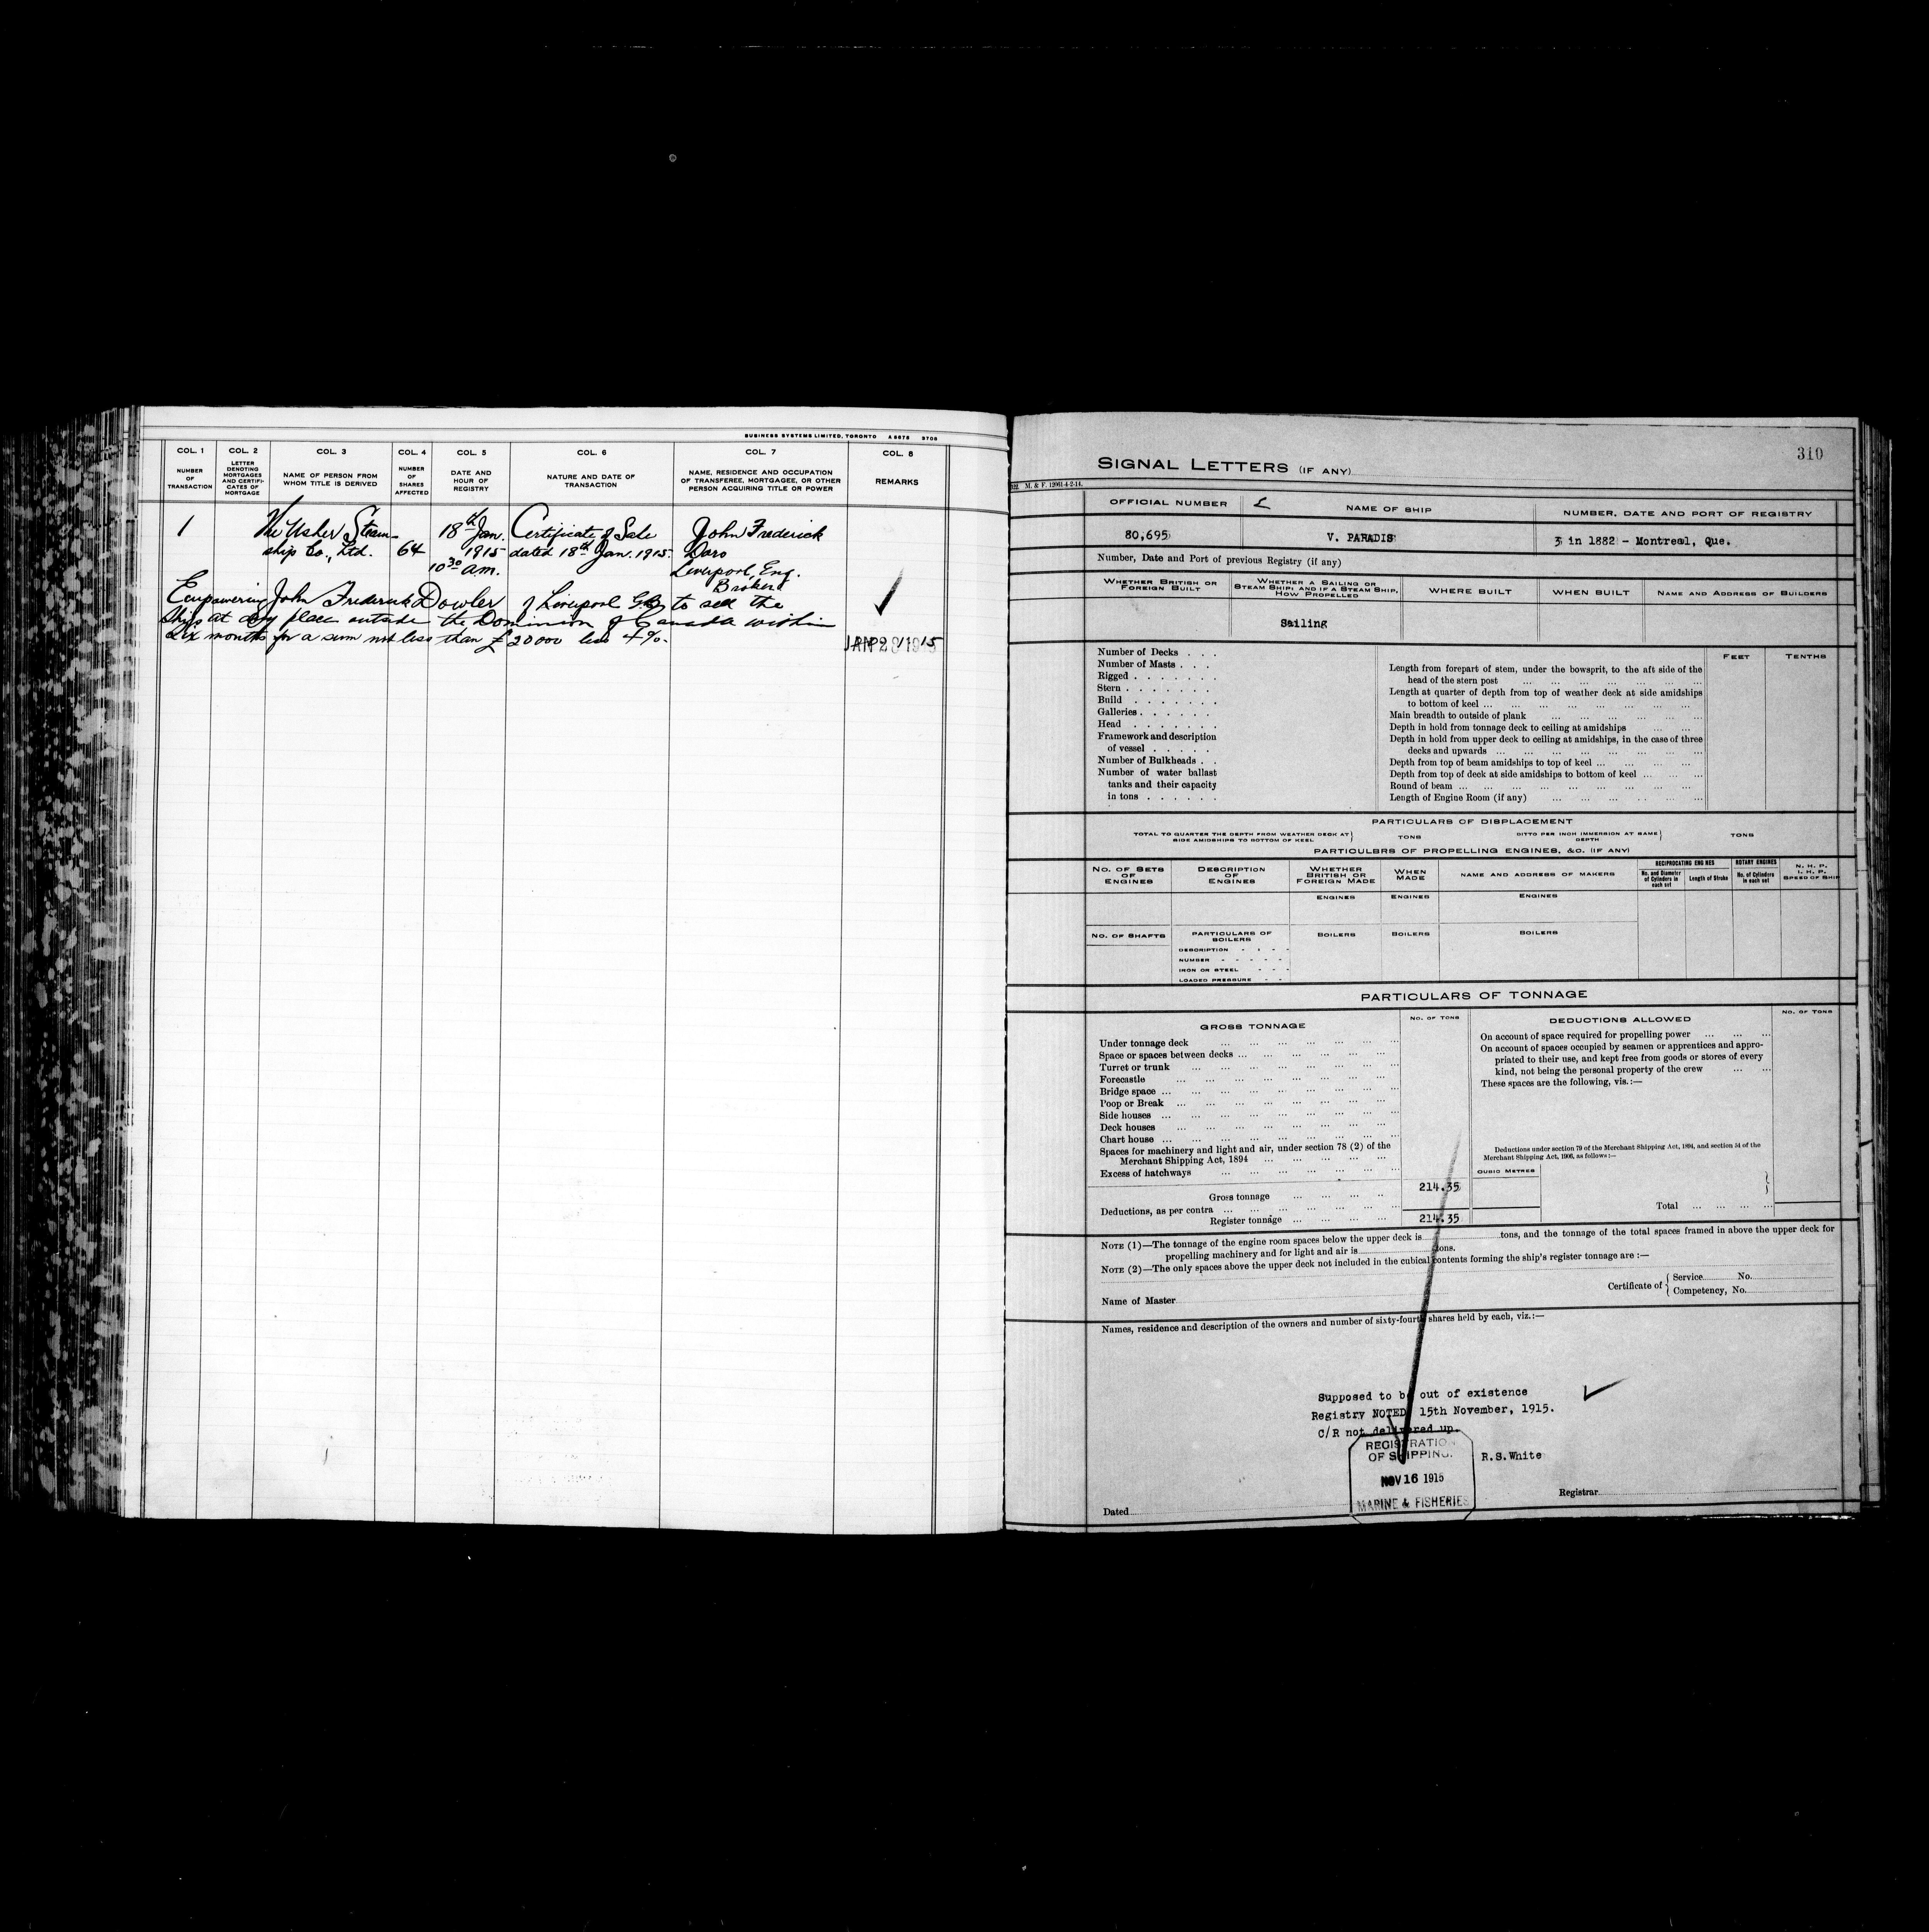 BUSINESS SYSTEMS LIMITED, TORONTO A 6878 9706
COL. 1 COL. 2 COL. 3 COL. 4 COL. 5 COL. 6 COL. 7 COL. 8
NUMBER OF TRANSACTION
LETTER DENOTING MORTGAGES AND CERTIFI- CATES OF MORTGAGE
NAME OF PERSON FROM WHOM TITLE IS DERIVED
NUMBER OF SHARES AFFECTED
DATE AND HOUR OF REGISTRY
NATURE AND DATE OF TRANSACTION
NAME, RESIDENCE AND OCCUPATION OF TRANSFEREE, MORTGAGEE, OR OTHER PERSON ACQUIRING TITLE OR POWER
REMARKS
1 The Usher Steam- 18th Jan. Certificate of Sale John Frederick
ship Co., Ltd. 64 1915 dated 18th Jan. 1915.
10 30 a.m. Liverpool, Eng.
Broker
Empowering John Frederick Dowler of Liverpool G.B. to sell the
Ship at any place outside the Dominion of Canada within
Six months for a sum not less than £20000 less 4%.
SIGNAL LETTERS (IF ANY)
310
M. & F. 12061-4-2-14.
OFFICIAL NUMBER NAME OF SHIP NUMBER, DATE AND PORT OF REGISTRY
80,695 V. PARADIS 3 in 1882 - Montreal, Que.
Number, Date and Port of previous Registry (if any)
WHETHER BRITISH OR FOREIGN BUILT
WHETHER A SAILING OR STEAM SHIP, AND IF A STEAM SHIP, HOW PROPELLED
WHERE BUILT
WHEN BUILT
NAME AND ADDRESS OF BUILDERS
Sailing
FEET TENTHS
Number of Decks . . .
Number of Masts . . .
Rigged . . . . . . .
Stern . . . . . . .
Build . . . . . . .
Galleries . . . . . .
Head . . . . . . .
Framework and description
of vessel . . . . .
Number of Bulkheads . .
Number of water ballast
tanks and their capacity
in tons . . . . . .
Length from forepart of stem, under the bowsprit, to the aft side of the
head of the stern post
Length at quarter of depth from top of weather deck at side amidships
to bottom of keel ...
Main breadth to outside of plank
Depth in hold from tonnage deck to ceiling at amidships
Depth in hold from upper deck to ceiling at amidships, in the case of three
decks and upwards ...
Depth from top of beam amidships to top of keel ...
Depth from top of deck at side amidships to bottom of keel ...
Round of beam ...
Length of Engine Room (if any)
PARTICULARS OF DISPLACEMENT
TOTAL TO QUARTER THE DEPTH FROM WEATHER DECK AT SIDE AMIDSHIPS TO BOTTOM OF KEEL } TONS
DITTO PER INCH IMMERSION AT SAME DEPTH } TONS
PARTICULARS OF PROPELLING ENGINES, &C. (IF ANY)
NO. OF SETS OF ENGINES
DESCRIPTION OF ENGINES
WHETHER BRITISH OR FOREIGN MADE
WHEN MADE
NAME AND ADDRESS OF MAKERS
RECIPROCATING ENGINES
No. and Diameter of Cylinders in each set
Length of Stroke
ROTARY ENGINES
No. of Cylinders in each set
N. H. P.
I. H. P.
SPEED OF SHIP
ENGINES ENGINES ENGINES
NO. OF SHAFTS PARTICULARS OF BOILERS BOILERS BOILERS BOILERS
DESCRIPTION - - - -
NUMBER - - - - -
IRON OR STEEL - - -
LOADED PRESSURE - -
PARTICULARS OF TONNAGE
GROSS TONNAGE NO. OF TONS
Under tonnage deck
Space or spaces between decks ...
Turret or trunk
Forecastle
Bridge space ...
Poop or Break
Side houses ...
Deck houses
Chart house ...
Spaces for machinery and light and air, under section 78 (2) of the
Merchant Shipping Act, 1894
Excess of hatchways
Gross tonnage 214.35
Deductions, as per contra ...
Register tonnage 214.35
DEDUCTIONS ALLOWED NO. OF TONS
On account of space required for propelling power
On account of spaces occupied by seamen or apprentices and appro-
priated to their use, and kept free from goods or stores of every
kind, not being the personal property of the crew
These spaces are the following, vis.:—
Deductions under section 79 of the Merchant Shipping Act, 1894, and section 54 of the
Merchant Shipping Act, 1906, as follows:—
CUBIC METRES
Total
NOTE (1)—The tonnage of the engine room spaces below the upper deck is tons, and the tonnage of the total spaces framed in above the upper deck for
propelling machinery and for light and air is tons.
NOTE (2)—The only spaces above the upper deck not included in the cubical contents forming the ship's register tonnage are :—
Name of Master
Certificate of { Service No.
Competency, No.
Names, residence and description of the owners and number of sixty-fourth shares held by each, viz.:—
Supposed to be out of existence
Registry NOTED 15th November, 1915.
C/R not delivered up.
REGISTRATION
OF SHIPPING.
R.S.White
NOV 16 1915
MARINE & FISHERIES
Registrar
Dated